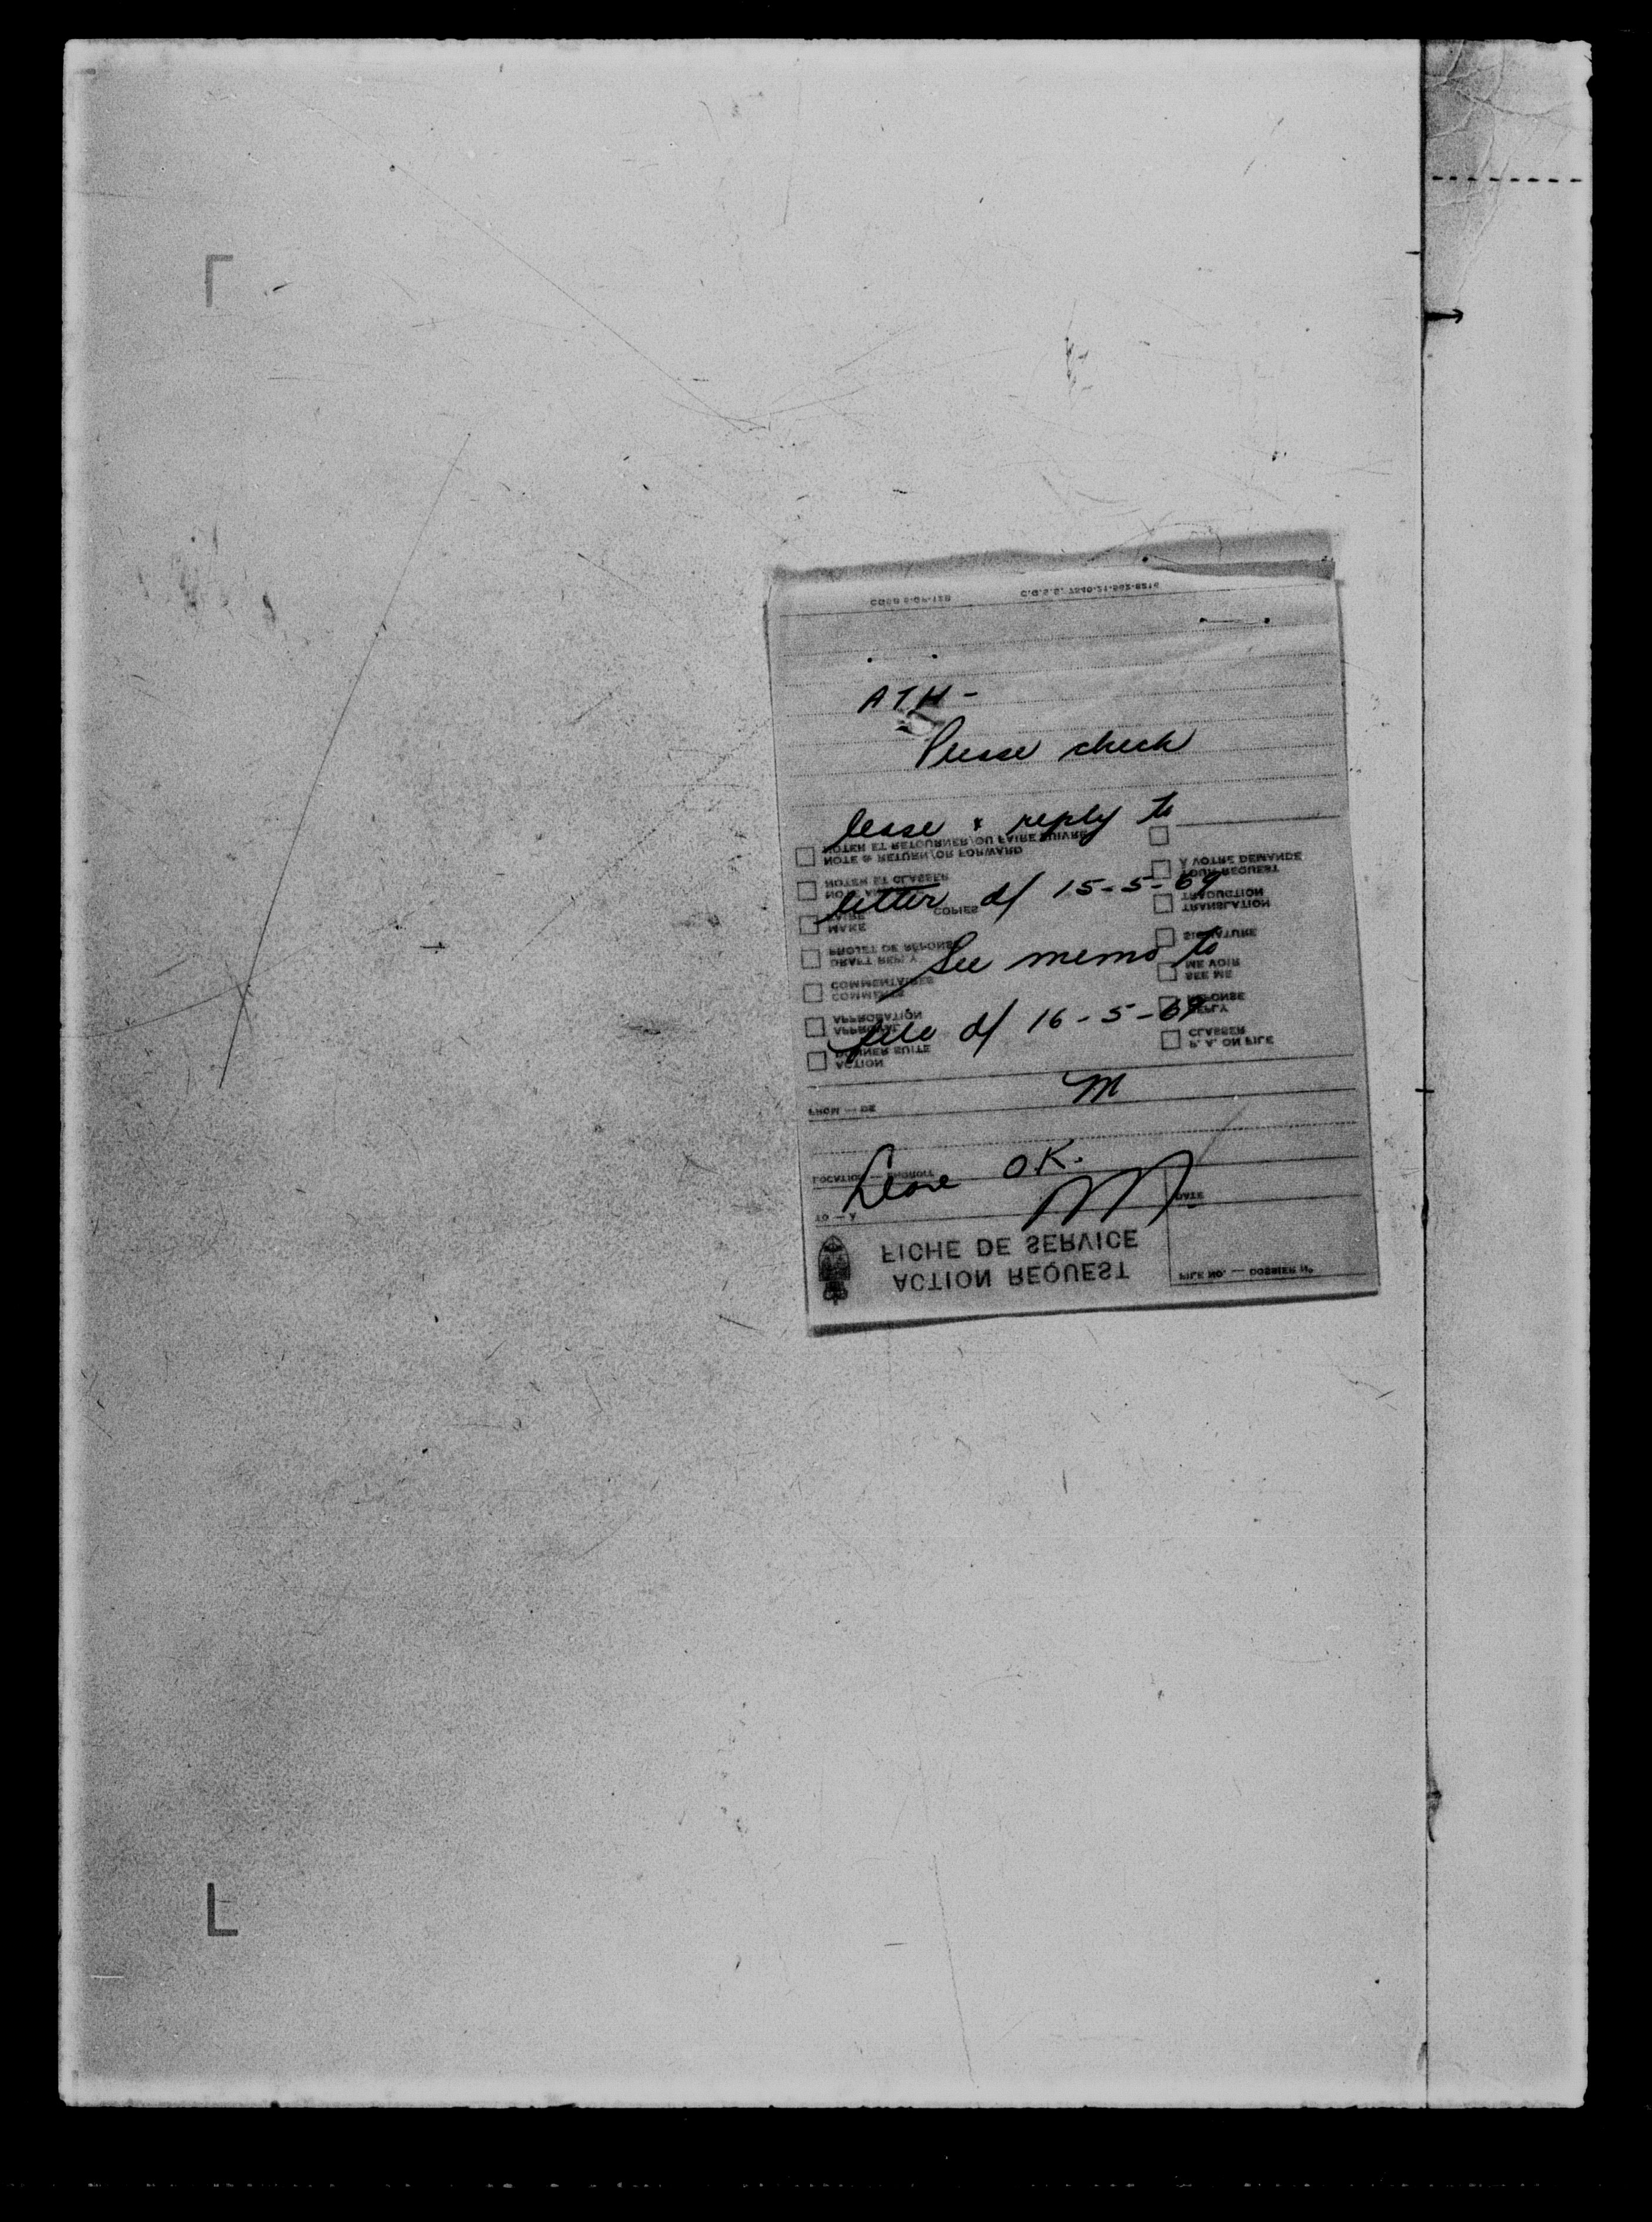 ATH -
Please check
lease & reply to
letter d/ 15-5-69
See memo to
file d/ 16-5-69
M
Lease OK.
M.
C.G.S.B. 6-GP-12B
C.G.S.S. 7540-21-862-8215
NOTER ET RETOURNER/OU FAIRE SUIVRE
NOTE & RETURN/OR FORWARD
NOTER ET CLASSER
COPIES
FAIRE
MAKE
PROJET DE RÉPONSE
DRAFT REPLY
COMMENTAIRES
COMMENTS
APPROBATION
APPROVAL
DONNER SUITE
ACTION
À VOTRE DEMANDE
YOUR REQUEST
TRADUCTION
TRANSLATION
SIGNATURE
ME VOIR
SEE ME
RÉPONSE
REPLY
CLASSER
P. A. ON FILE
FROM — DE
LOCATION — ENDROIT
TO — À
DATE
FICHE DE SERVICE
ACTION REQUEST
FILE NO. — DOSSIER No